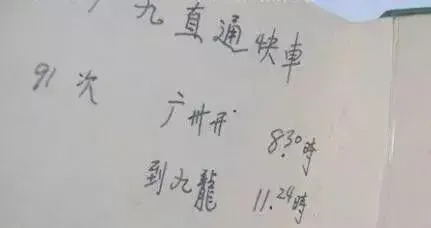 九直通快車
91次
广州开
8.30時
到九龍
11.24時